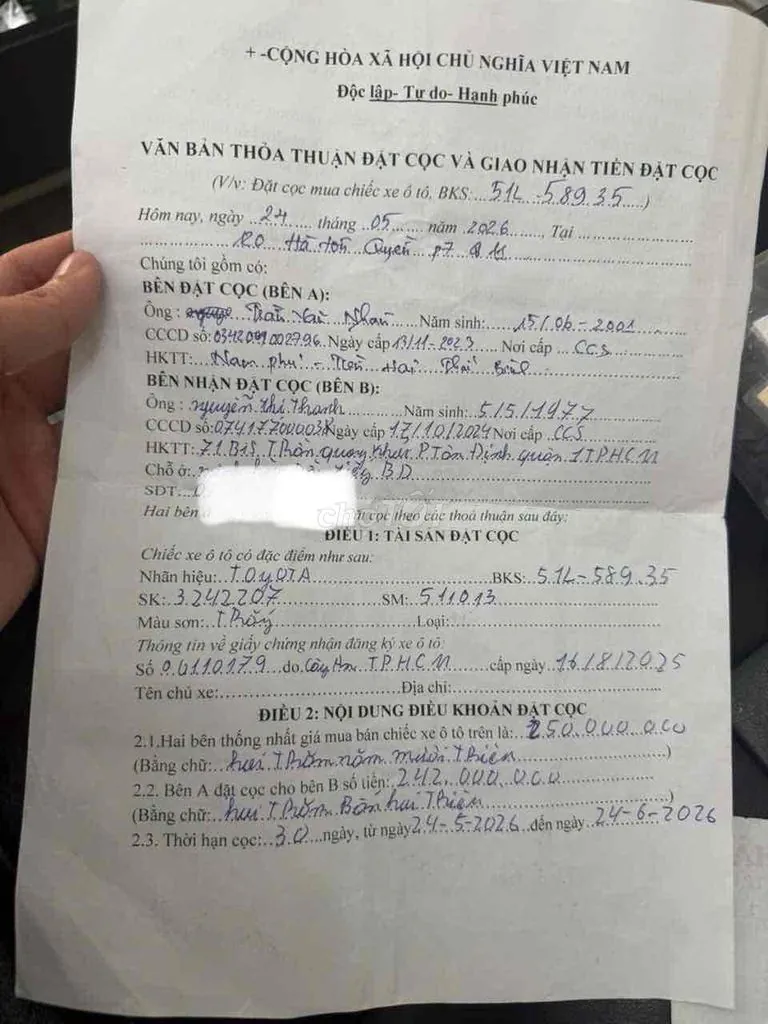 + -CỘNG HÒA XÃ HỘI CHỦ NGHĨA VIỆT NAM
Độc lập- Tự do- Hạnh phúc
VĂN BẢN THỎA THUẬN ĐẶT CỌC VÀ GIAO NHẬN TIỀN ĐẶT CỌC
(V/v: Đặt cọc mua chiếc xe ô tô, BKS: 51L-589.35)
Hôm nay, ngày 24 tháng 05 năm 2026, Tại
20 Hà Tôn Quyền p7 Q11
Chúng tôi gồm có:
BÊN ĐẶT CỌC (BÊN A):
Ông: Trần Văn Năm sinh: 15/06-2001
CCCD số: Ngày cấp 13/11-2023 Nơi cấp CCS
HKTT: Nam phú - Tiền Hải Thái Bình
BÊN NHẬN ĐẶT CỌC (BÊN B):
Ông: nguyễn thi Thanh Năm sinh: 5/5/1977
CCCD số: Ngày cấp 17/10/2024 Nơi cấp CCS
HKTT: 71 Bis Trần quang khải P. Tân Định quận 1 TPHCM
Chỗ ở: BD
SDT: 0
Hai bên đặt cọc theo các thoả thuận sau đây:
ĐIỀU 1: TÀI SẢN ĐẶT CỌC
Chiếc xe ô tô có đặc điểm như sau:
Nhãn hiệu: TOYOTA BKS: 51L-589.35
SK: 3242207 SM: 511013
Màu sơn: Trắng Loại:
Thông tin về giấy chứng nhận đăng ký xe ô tô:
Số 0.0110179 do Cây An TPHCM cấp ngày 16/8/2025
Tên chủ xe: Địa chỉ:
ĐIỀU 2: NỘI DUNG ĐIỀU KHOẢN ĐẶT CỌC
2.1.Hai bên thống nhất giá mua bán chiếc xe ô tô trên là: 250.000.000
(Bằng chữ: hai Trăm năm mươi Triệu)
2.2. Bên A đặt cọc cho bên B số tiền: 242.000.000
(Bằng chữ: hai Trăm Bốn hai Triệu)
2.3. Thời hạn cọc: 30 ngày, từ ngày 24-5-2026 đến ngày 24-6-2026